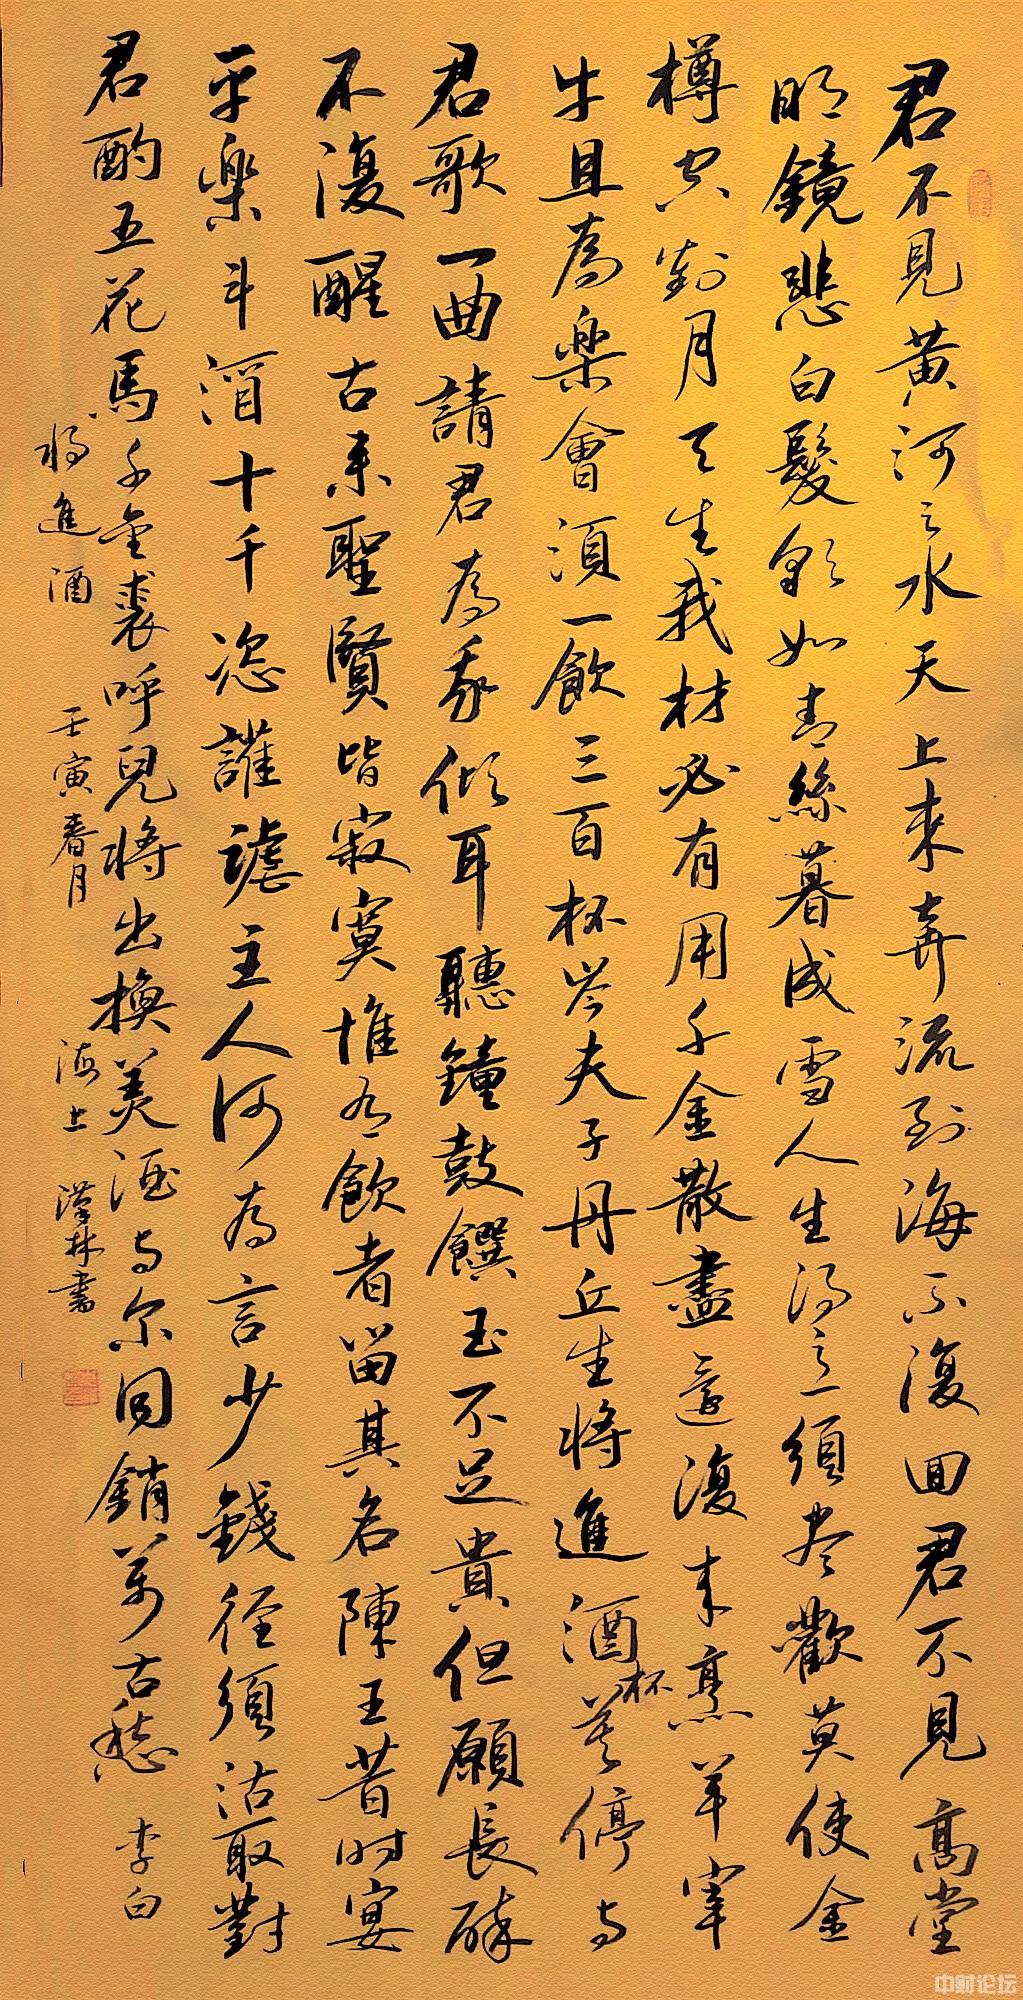 君不見黄河之水天上來奔流到海不復回君不見高堂
明鏡悲白髮朝如青絲暮成雪人生得意須尽歡莫使金
樽空對月天生我材必有用千金散盡還復來烹羊宰
牛且為楽會須一飲三百杯岑夫子丹丘生將進酒杯莫停与
君歌一曲請君為我傾耳聽鐘鼓饌玉不足貴但願長醉
不復醒古來聖賢皆寂寞惟有飲者留其名陳王昔時宴
平楽斗酒十千恣讙謔主人何為言少錢徑須沽取對
君酌五花馬千金裘呼兒將出換美酒与尔同銷萬古愁 李白
將進酒 壬寅春月 海上 漢林書
中财论坛